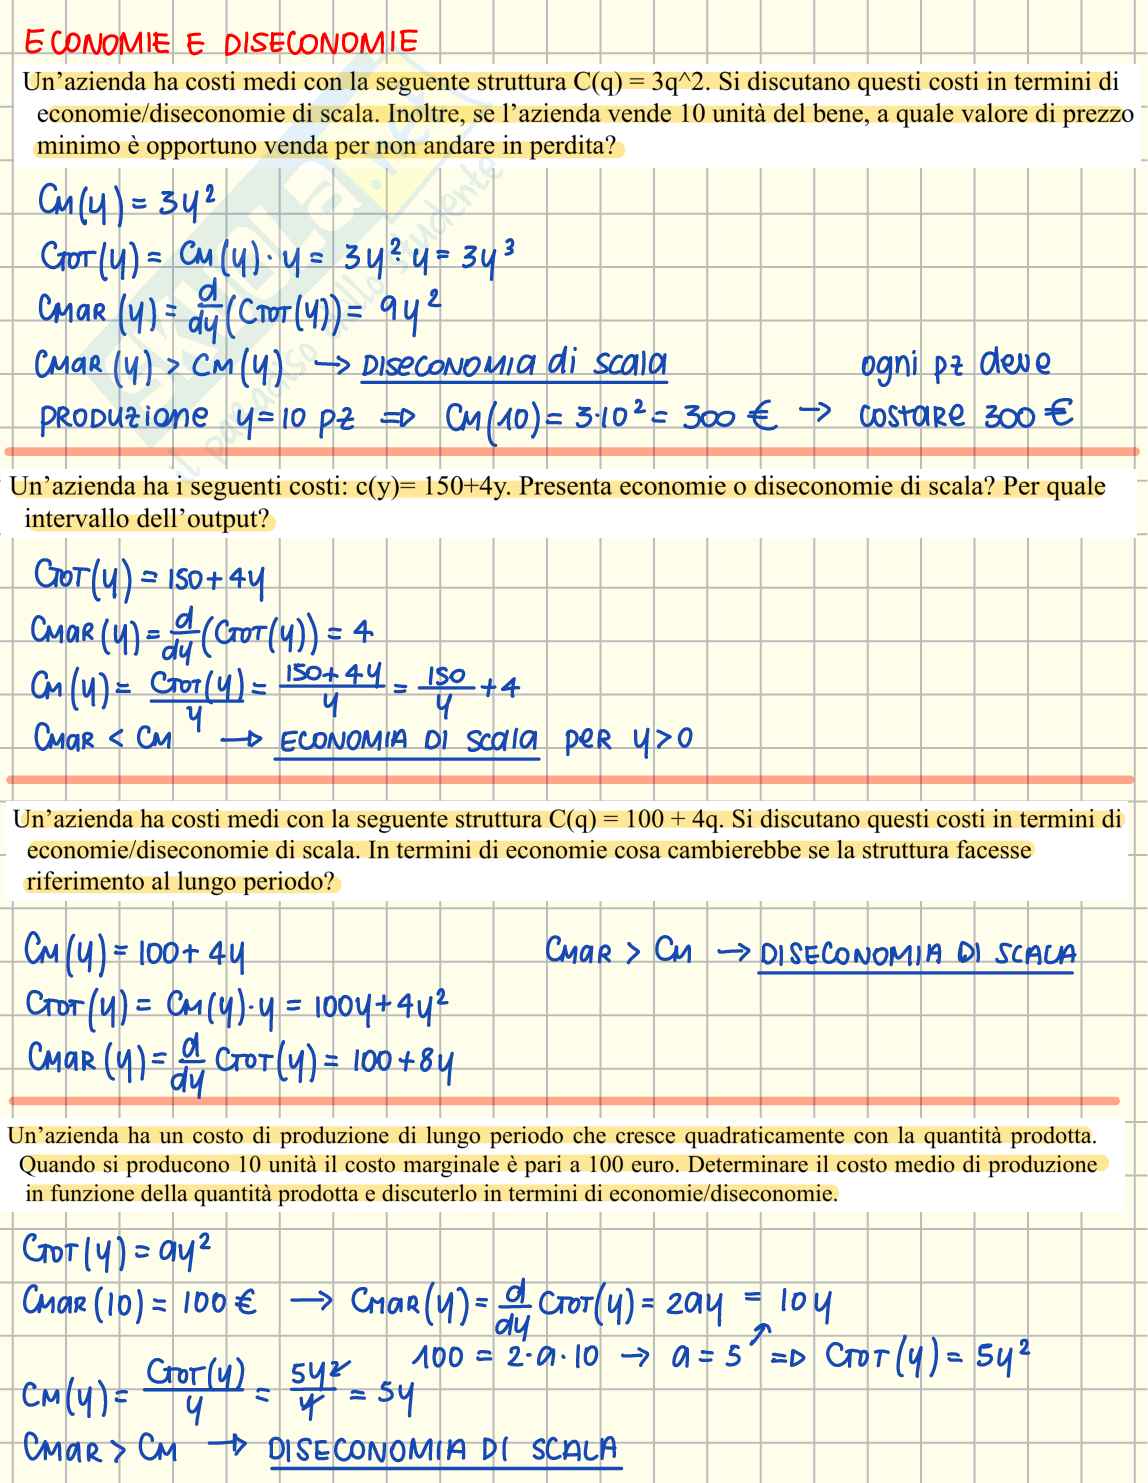 ECONOMIE E DISECONOMIE
Un'azienda ha costi medi con la seguente struttura C(q) = 3q^2. Si discutano questi costi in termini di
economie/diseconomie di scala. Inoltre, se l'azienda vende 10 unità del bene, a quale valore di prezzo
minimo è opportuno venda per non andare in perdita?
CM(y) = 3y²
CTOT(y) = CM(y) · y = 3y² · y = 3y³
CMAR (y) = d/dy (CTOT(y)) = 9y²
CMAR (y) > CM (y) → DISECONOMIA di scala ogni pz deve
PRODUZIONE y=10 pz ⇒ CM(10) = 3·10² = 300 € → COSTARE 300 €
Un'azienda ha i seguenti costi: c(y)= 150+4y. Presenta economie o diseconomie di scala? Per quale
intervallo dell'output?
CTOT(y) = 150+4y
CMAR (y) = d/dy (CTOT(y)) = 4
CM(y) = CTOT(y)/y = 150+4y/y = 150/y + 4
CMAR < CM → ECONOMIA DI SCALA PER y>0
Un'azienda ha costi medi con la seguente struttura C(q) = 100 + 4q. Si discutano questi costi in termini di
economie/diseconomie di scala. In termini di economie cosa cambierebbe se la struttura facesse
riferimento al lungo periodo?
CM(y) = 100+ 4y CMAR > CM → DISECONOMIA DI SCALA
CTOT(y) = CM(y)·y = 100y+4y²
CMAR (y) = d/dy CTOT(y) = 100+8y
Un'azienda ha un costo di produzione di lungo periodo che cresce quadraticamente con la quantità prodotta.
Quando si producono 10 unità il costo marginale è pari a 100 euro. Determinare il costo medio di produzione
in funzione della quantità prodotta e discuterlo in termini di economie/diseconomie.
CTOT(y) = ay²
CMAR (10) = 100 € → CMAR(y) = d/dy CTOT(y) = 2ay = 10y
100 = 2·a·10 → a = 5 ⇒ CTOT(y) = 5y²
CM(y) = CTOT(y)/y = 5y²/y = 5y
CMAR > CM → DISECONOMIA DI SCALA